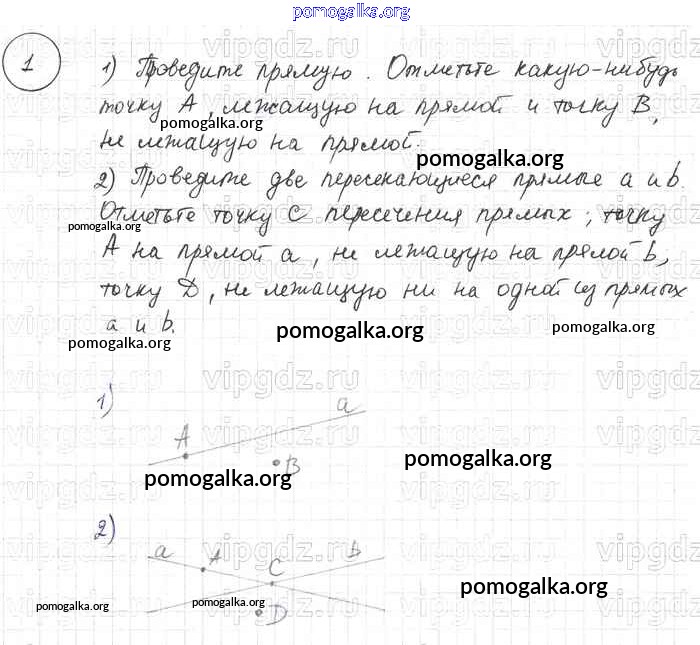 pomogalka.org
1
1) Проведите прямую. Отметьте какую-нибудь
точку А, лежащую на прямой и точку В,
pomogalka.org
не лежащую на прямой.
pomogalka.org
2) Проведите две пересекающиеся прямые a и b.
Отметьте точку С пересечения прямых; точку
pomogalka.org
А на прямой a, не лежащую на прямой b,
точку D, не лежащую ни на одной из прямых
a и b.
pomogalka.org
pomogalka.org
pomogalka.org
vipgdz.ru
1)
a
A
B
pomogalka.org
pomogalka.org
2)
a
A
C
b
D
pomogalka.org
pomogalka.org
pomogalka.org